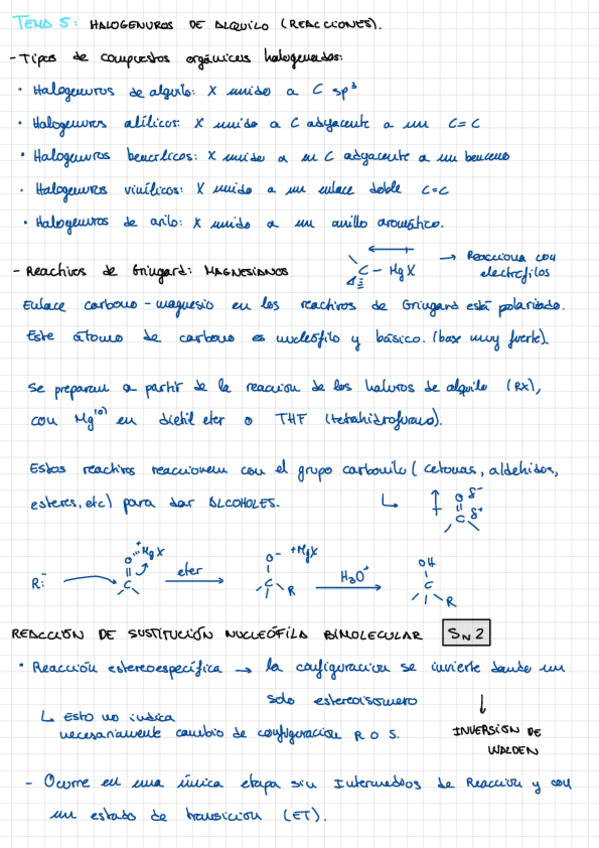 TEMA 5: HALOGENUROS DE ALQUILO (REACCIONES).
- Tipos de compuestos orgánicos halogenados:
· Halogenuros de alquilo: X unido a C sp³
· Halogenuros alílicos: X unido a C adyacente a un C=C
· Halogenuros bencílicos: X unido a un C adyacente a un benceno
· Halogenuros vinílicos: X unido a un enlace doble C=C
· Halogenuros de arilo: X unido a un anillo aromático.
- Reactivos de Gringard: MAGNESIANOS
C - MgX → Reacciona con electrófilos
Enlace carbono - magnesio en los reactivos de Gringard está polarizado.
Este átomo de carbono es nucleófilo y básico. (base muy fuerte).
Se preparan a partir de la reaccion de los haluros de alquilo (RX),
con Mg⁽⁰⁾ en dietil eter o THF (tetrahidrofurano).
Estos reactivos reaccionem con el grupo carbonilo (cetonas, aldehidos,
esteres, etc) para dar ALCOHOLES. O δ⁻ C δ⁺
R:⁻ O ⁺MgX C eter O⁻ ⁺MgX C R H₃O⁺ OH C R
REACCIÓN DE SUSTITUCIÓN NUCLEÓFILA BIMOLECULAR SN2
· Reacción estereoespecífica → la configuracion se invierte dando un
solo estereoisomero
↳ Esto no indica
necesariamente cambio de configuracion R O S.
↓
INVERSIÓN DE
WALDEN
- Ocurre en una única etapa sin Intermedios de Reaccion y con
un estado de transicion (ET).